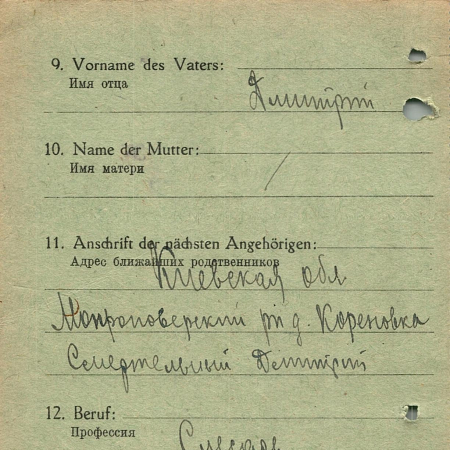 9. Vorname des Vaters:
Имя отца
Дмитрий
10. Name der Mutter:
Имя матери
/
11. Anschrift der nächsten Angehörigen:
Адрес ближайших родственников
Киевская обл
рн д. Кореновка
Дмитрий
12. Beruf:
Профессия